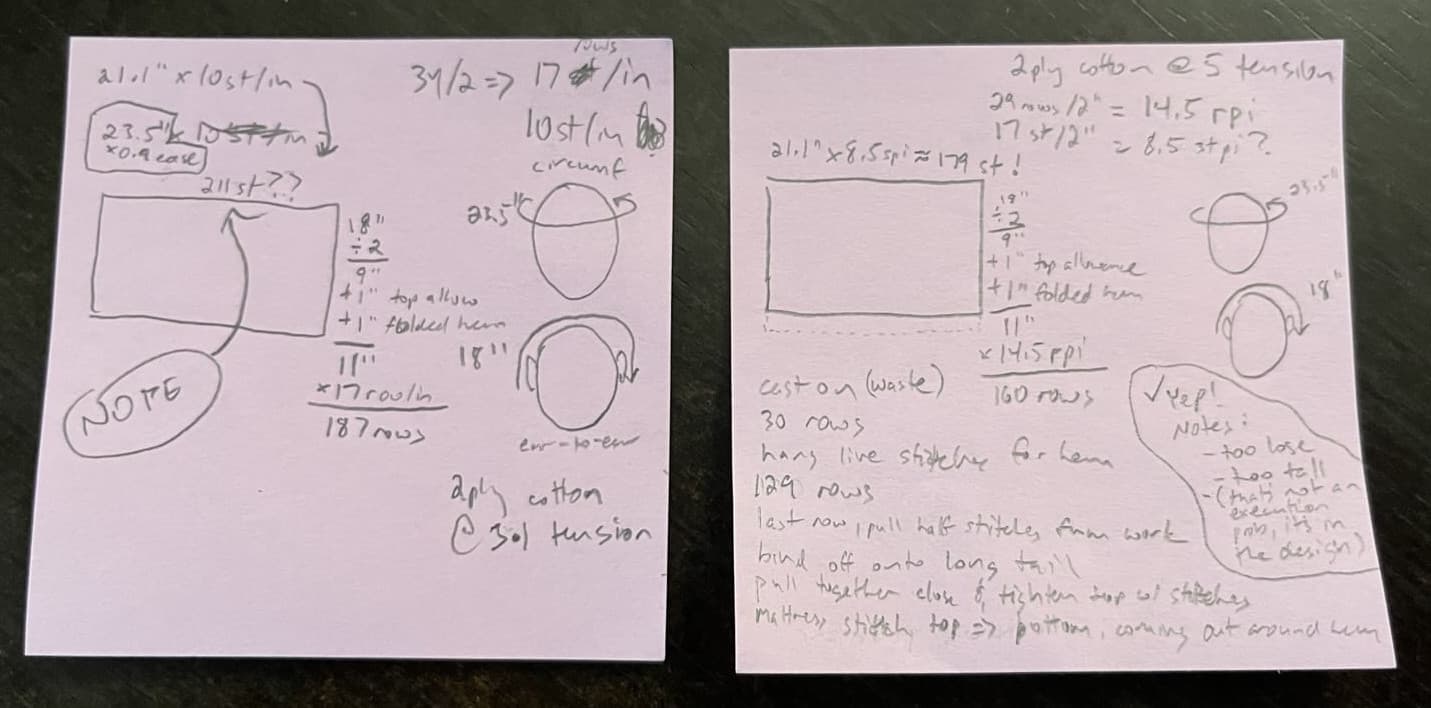 21.1" x 10st/in
23.5"
x0.9 ease
211st??
18"
÷2
9"
+1" top allow
+1" folded hem
11"
x17 row/in
187 rows
NOTE
34/2 => 17 /in
rows
10st/in
circumf
23.5"
18"
ear-to-ear
2ply cotton
@ 3.1 tension
2ply cotton @ 5 tension
29 rows/2" = 14.5 rpi
17 st/2" = 8.5 stpi?
21.1" x 8.5spi ≈ 179 st!
18"
÷2
9"
+1" top allowance
+1" folded hem
11"
x14.5rpi
160 rows
23.5"
18"
cast on (waste)
30 rows
hang live stitches for hem
129 rows
last row, pull half stitches from work
bind off onto long tail
pull together close & tighten top w/ stitches
mattress stitch top => bottom, coming out around hem
✓ Yep!
Notes:
- too lose
- too tall
- (that's not an
execution
prob, it's in
the design)